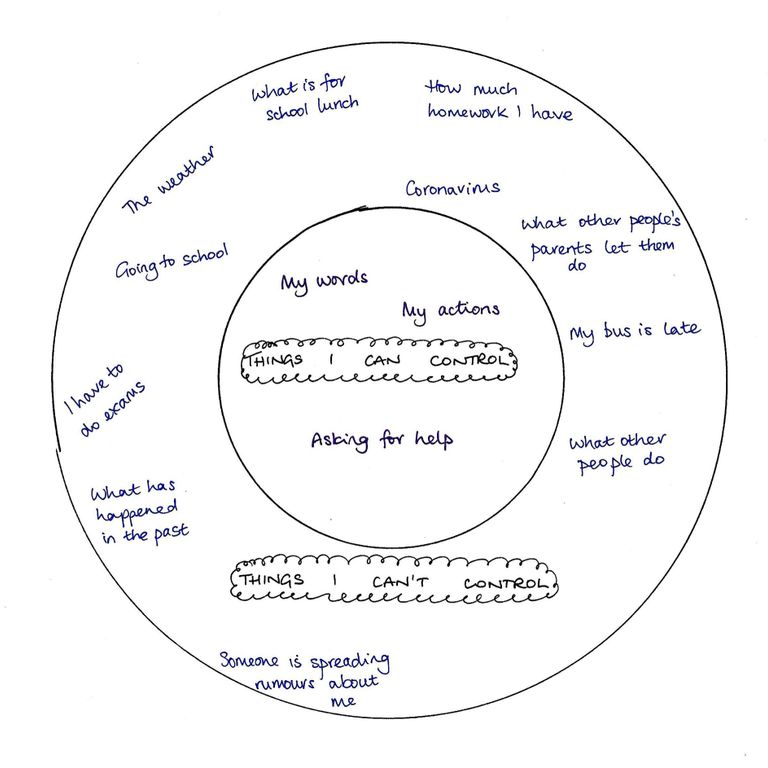 What is for
school lunch
How much
homework I have
The weather
Coronavirus
What other people's
parents let them
do
Going to school
My words
My actions
My bus is late
THINGS I CAN CONTROL
I have to
do exams
Asking for help
What other
people do
What has
happened
in the past
THINGS I CAN'T CONTROL
Someone is spreading
rumours about
me